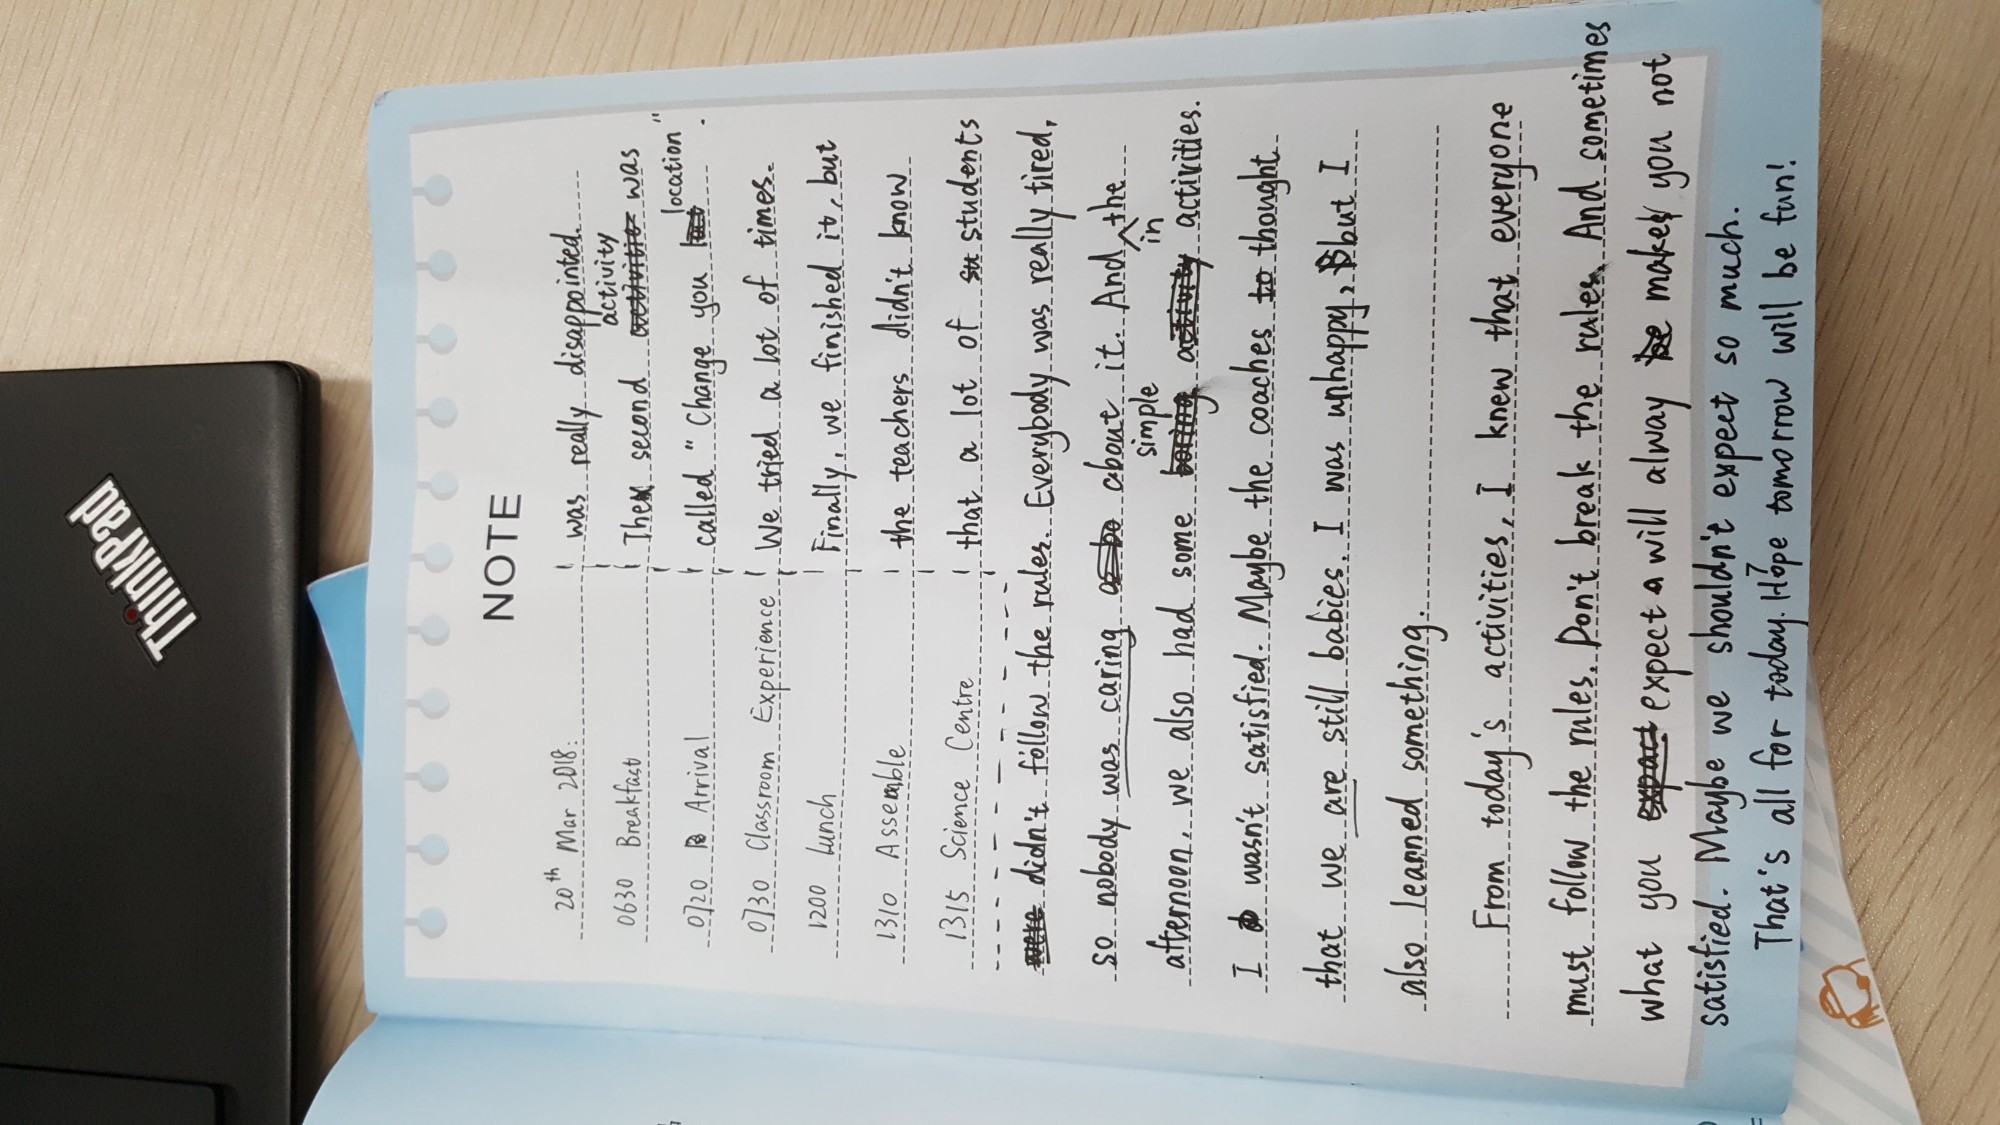 ThinkPad
NOTE
20th Mar 2018:
0630 Breakfast
0720 Arrival
0730 Classroom Experience
1200 Lunch
1310 Assemble
1315 Science Centre
was really disappointed.
The second activity was
called "Change you location".
We tried a lot of times.
Finally, we finished it, but
the teachers didn't know
that a lot of students
didn't follow the rules. Everybody was really tired,
so nobody was caring about it. And in the
afternoon, we also had some simple activities.
I wasn't satisfied. Maybe the coaches thought
that we are still babies. I was unhappy, but I
also learned something.
From today's activities, I knew that everyone
must follow the rules. Don't break the rules. And sometimes
what you expect will alway make you not
satisfied. Maybe we shouldn't expect so much.
That's all for today. Hope tomorrow will be fun!